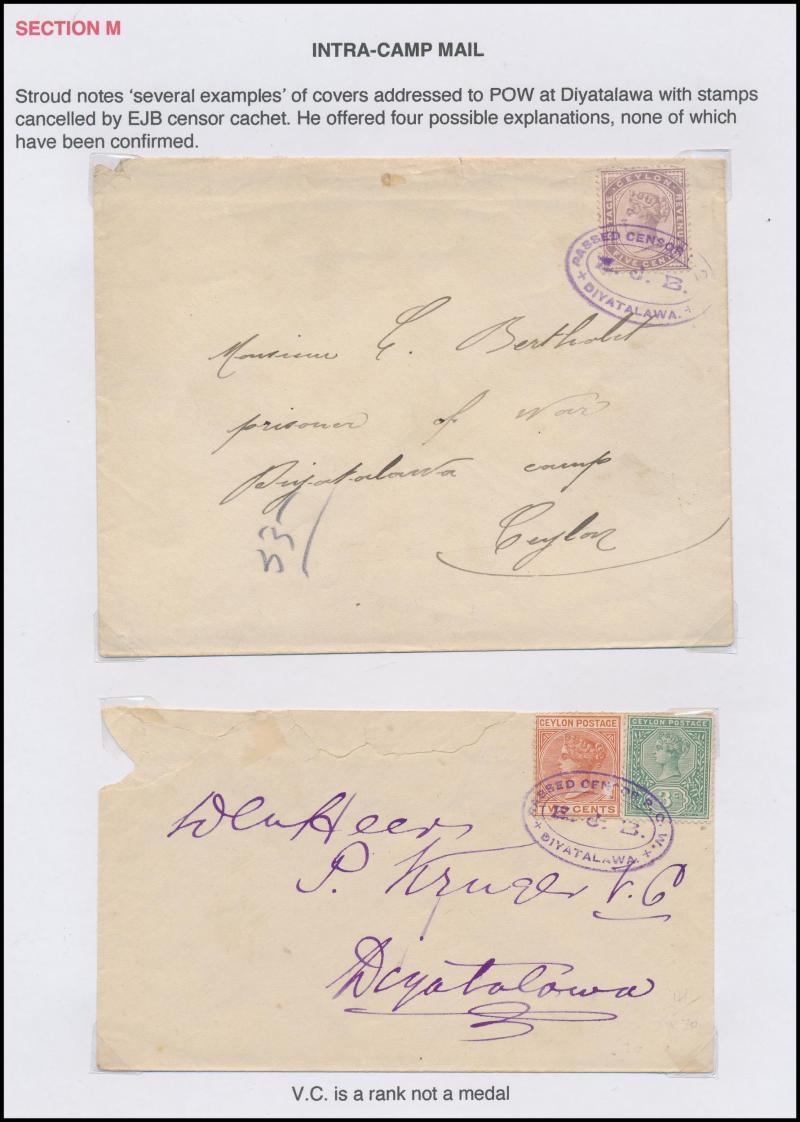 SECTION M
INTRA-CAMP MAIL
Stroud notes ‘several examples’ of covers addressed to POW at Diyatalawa with stamps
cancelled by EJB censor cachet. He offered four possible explanations, none of which
have been confirmed.
POSTAGE CEYLON REVENUE
FIVE CENTS
PASSED CENSOR
E. J. B.
+ DIYATALAWA. +
Monsieur C. Bertholet
prisoner of War
Diyatalawa camp
Ceylon
CEYLON POSTAGE
CEYLON POSTAGE
TWO CENTS
PASSED CENSOR P.O.W.
E. J. B.
+ DIYATALAWA. +
Den Heer
P. Kruger V.C
Diyatalawa
V.C. is a rank not a medal